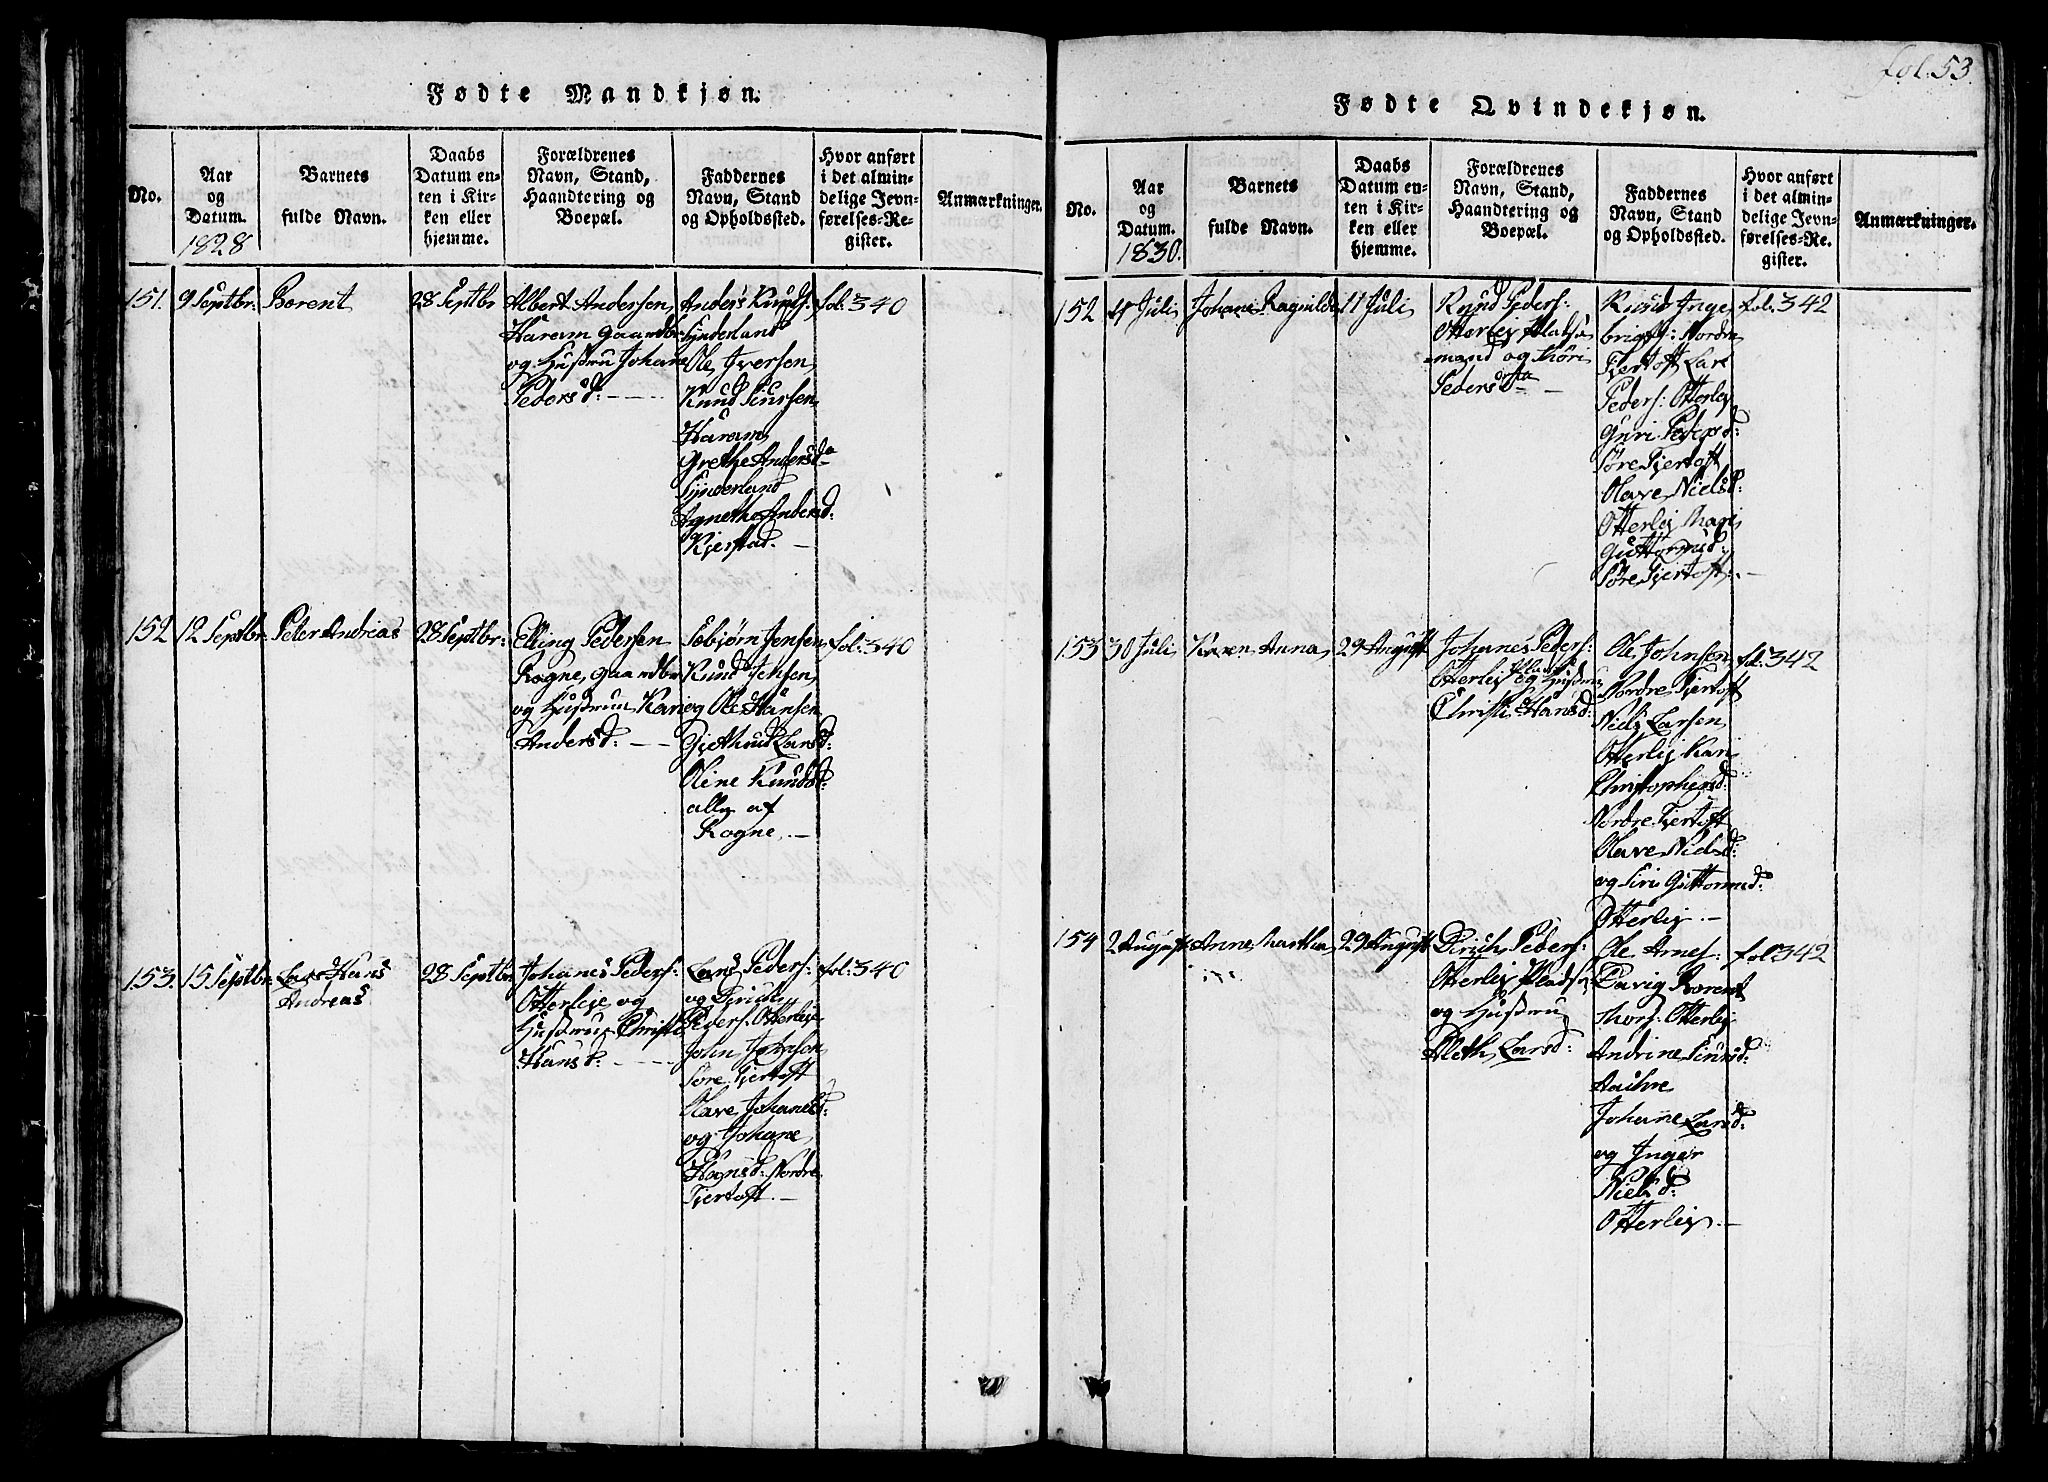 Fødte Mandkjøn.
No.
Aar
og
Datum.
1828
Barnets
fulde Navn.
Daabs
Datum en-
ten i Kir-
ken eller
hjemme.
Forældrenes
Navn, Stand,
Haandtering og
Boepæl.
Faddernes
Navn, Stand
og Opholdssted.
Hvor anført
i det almin-
delige Jevn-
førelses-Re-
gister.
Anmærkninger.
151.
9 Septbr:
Berent
28 Septbr
Albert Andersen
Haram Gaardbr
og Hustru Johane
Pedersd:
Anders Knuds:
Synderland
Ole Iversen
Knud Siursen
Haram
Grethe Andersd
Synderland
Agnethe Andersd:
Kjerstad.
fol: 340
152
12 Septbr:
Peter Andreas
28 Septbr:
Elling Pedersen
Rogne, Gaardbr
og Hustrue Kari
Andersd:
Sebjørn Jensen
Knud Jensen
og Ole Hansen
Gjethrud Larsd:
Oline Knudsd:
alle af
Rogne.
fol: 340
153.
15 Septbr:
Lars Hans
Andreas
28 Septbr
Johanes Peders:
Otterleje og
Hustrue Christi
Hansd:
Lars Peders:
og Dirich
Peders: Otterleje
John Johnsen
Søre Fjertoft
Olave Johanesd:
og Johane
Hansd: Nordre
Fjertoft.
fol: 340
fol. 53.
Fødte Qvindekjøn.
No.
Aar
og
Datum.
1830.
Barnets
fulde Navn.
Daabs
Datum en-
ten i Kir-
ken eller
hjemme.
Forældrenes
Navn, Stand,
Haandtering og
Boepæl.
Faddernes
Navn, Stand
og Opholdssted.
Hvor anført
i det almin-
delige Jevn-
førelses-Re-
gister.
Anmærkninger.
152
Juli
Johane Ragnilde
11 Juli
Knud Peders:
Otterlej Pladse
mand og
Pedersd
Knud Inge
brigts: Nordre
Fjertoft Lars
Peders: Otterlej
Guri Pedersd:
Søre Fjertoft
Olave Nielsd:
Otterlej Mari
Guttormsd:
Søre Fjertoft.
fol. 342
153
30 Juli
Karen Anna
29 August
Johanes Peders:
Otterlej og Hustru
Christi Hansd:
Ole Johnsen
Nordre Fjertoft
Niels Larsen
Otterlej Kari
Christophersd:
Nordre Fjertoft
Olave Nielsd:
og Siri Guttormsd:
Otterlej.
fol. 342
154
2 August
Anne Martha
29 August
Dirich Peders:
Otterlej Pladsm
og Hustru
Aleth Larsd:
Ole Arnes:
Davig Berent
Thors: Otterlej
Andrine Siursd:
Johane Larsd:
og Inger
Nielsd:
Otterlej.
fol 342